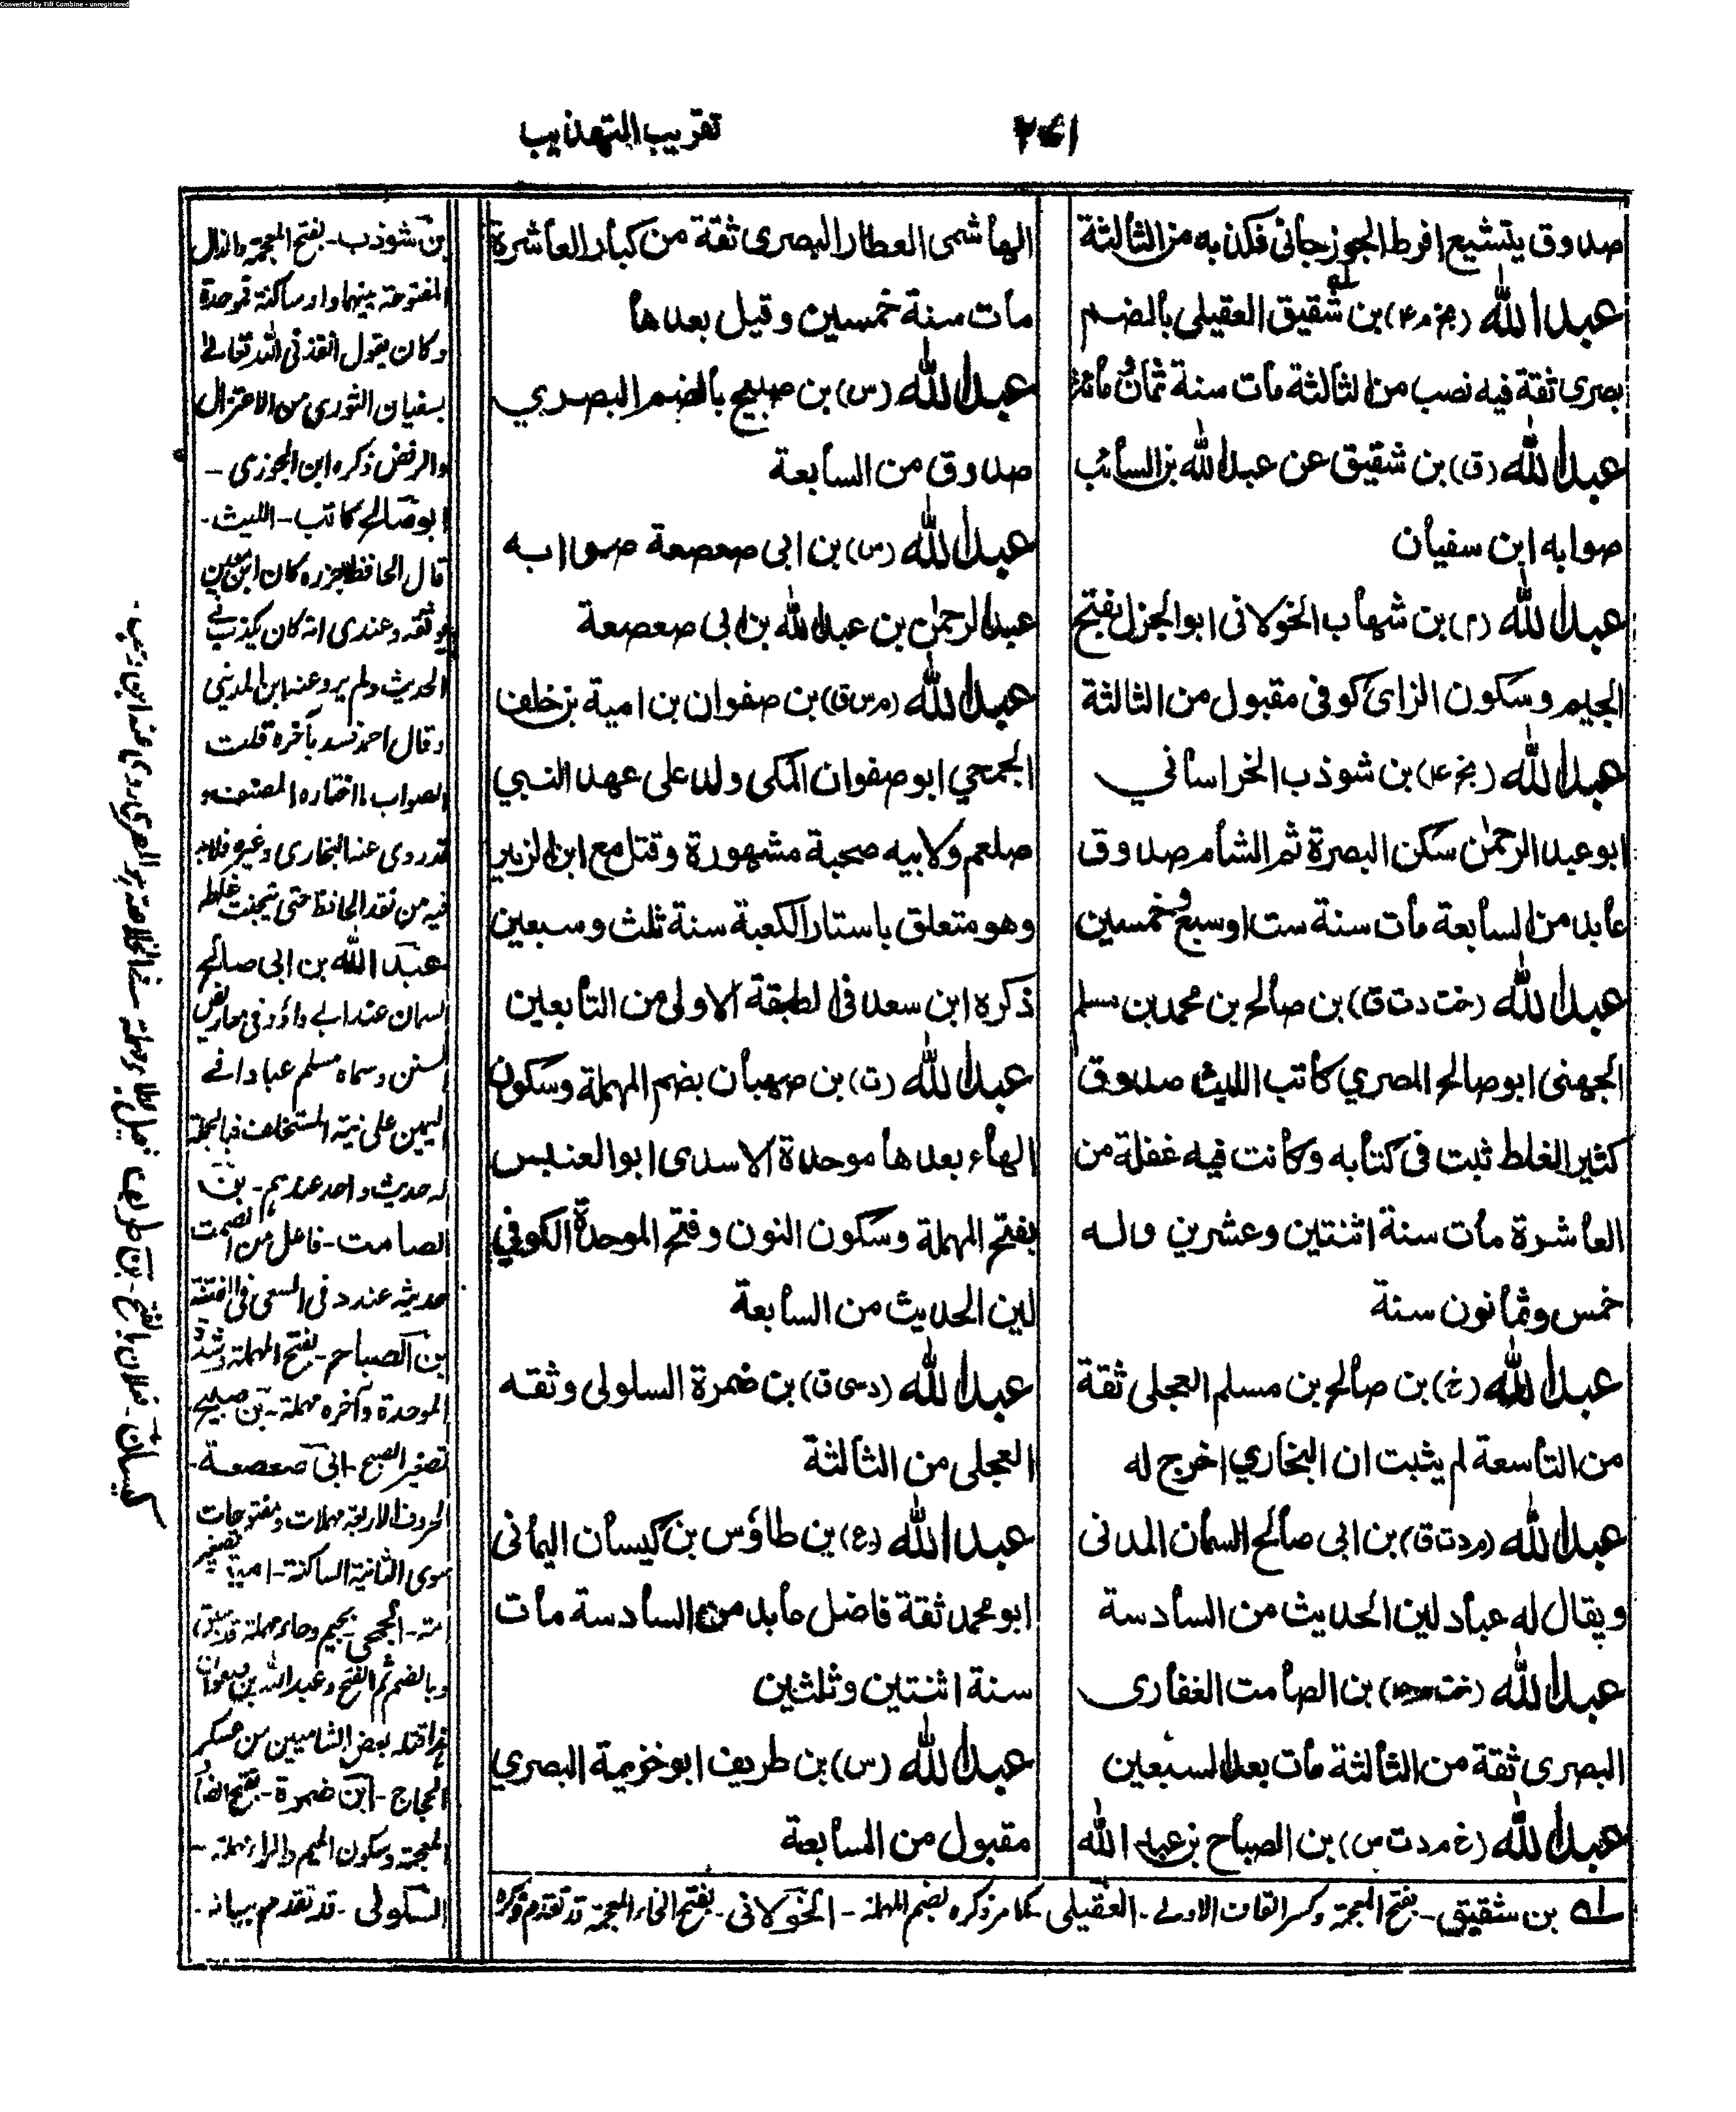 Converted by Tiff Combine - unregistered
تقريب التهذيب
صدوق يتشيع افرط الجوزجانى فكذبه من الثالثة
عبد الله (بخ م ۴) بن شقيق العقيلى بالضم
بصرى ثقة فيه نصب من الثالثة مات سنة ثمان ومائة
عبد الله (ق) بن شقيق عن عبد الله بن السائب
صوابه ابن سفيان
عبد الله (م) بن شهاب الخولانى ابو الجزل بفتح
الجيم وسكون الزاى كوفى مقبول من الثالثة
عبد الله (بخ ۴) بن شوذب الخراساني
ابو عبد الرحمٰن سكن البصرة ثم الشام صدوق
عابد من السابعة مات سنة ست او سبع وخمسين
عبد الله (خت د ت ق) بن صالح بن محمد بن مسلم
الجهنى ابو صالح المصري كاتب الليث صدوق
كثير الغلط ثبت فى كتابه وكانت فيه غفلة من
العاشرة مات سنة اثنتين وعشرين وله
خمس وثمانون سنة
عبد الله (خ) بن صالح بن مسلم العجلى ثقة
من التاسعة لم يثبت ان البخاري اخرج له
عبد الله (م د ت ق) بن ابى صالح السمان المدنى
ويقال له عباد لين الحديث من السادسة
عبد الله (خت) بن الصامت الغفارى
البصرى ثقة من الثالثة مات بعد السبعين
عبد الله (خ م د ت س) بن الصباح بن عبد الله
الهاشمى العطار البصرى ثقة من كبار العاشرة
مات سنة خمسين وقيل بعدها
عبد الله (س) بن صبيح بالضم البصري
صدوق من السابعة
عبد الله (س) بن ابى صعصعة صوابه
عبد الرحمٰن بن عبد الله بن ابى صعصعة
عبد الله (م س ق) بن صفوان بن امية بن خلف
الجمحي ابو صفوان المكى ولد على عهد النبي
صلعم ولابيه صحبة مشهورة وقتل مع ابن الزبير
وهو متعلق باستار الكعبة سنة ثلث وسبعين
ذكره ابن سعد فى الطبقة الاولى من التابعين
عبد الله (ت) بن صهبان بضم المهملة وسكون
الهاء بعدها موحدة الاسدى ابو العنبس
بفتح المهملة وسكون النون وفتح الموحدة الكوفي
لين الحديث من السابعة
عبد الله (د س ق) بن ضمرة السلولى وثقه
العجلى من الثالثة
عبد الله (ع) بن طاؤس بن كيسان اليمانى
ابو محمد ثقة فاضل عابد من السادسة مات
سنة اثنتين وثلثين
عبد الله (س) بن طريف ابو خزيمة البصري
مقبول من السابعة
له بن شقيق - بفتح المعجمة وكسر القاف الاولى - العقيلى كما مر ذكره بضم المهملة - الخولانى - بفتح الخاء المعجمة قد تقدم ذكره
بن شوذب - بفتح المعجمة والذال
المفتوحة بينهما واو ساكنة فموحدة
وكان يقول انقذنى الله تعالى
بسفيان الثورى من الاعتزال
والرفض ذكره ابن الجوزى -
ابو صالح كاتب - الليث -
قال الحافظ جزره كان ابن معين
يوثقه وعندى انه كان يكذب فى
الحديث ولم يرو عنه ابن المدينى
وقال احمد فسد بآخره قلت
الصواب ما اختاره المصنف و
قد روى عنه البخارى وغيره فلابد
فيه من نقد الحافظ حتى يجتنب غلطه
عبد الله بن ابى صالح
السمان عند ابى داؤد فى معاريض
السنن وسماه مسلم عبادا فى
اليمين على نية المستحلف فبالجملة
له حديث واحد عندهم - بن
الصامت - فاعل من الصمت
حديثه عند د فى السعى فى الفتنة
بن الصباح - بفتح المهملة وشدة
الموحدة وآخره مهملة - بن صبيح
تصغير الصبح - ابى صعصعة -
الحروف الاربعة مهملات ومفتوحات
سوى الثانية الساكنة - امية تصغير
امة - الجمحى بجيم وحاء مهملة قد سبق
وبالضم ثم الفتح وعبد الله بن صفوان
هذا قتله بعض الشاميين من عسكر
الحجاج - ابن ضمرة - بفتح الضاد
المعجمة وسكون الميم والراء مهملة -
السلولى - قد تقدم بيانه -
كيسان - فعلان بالفتح - بن طريف